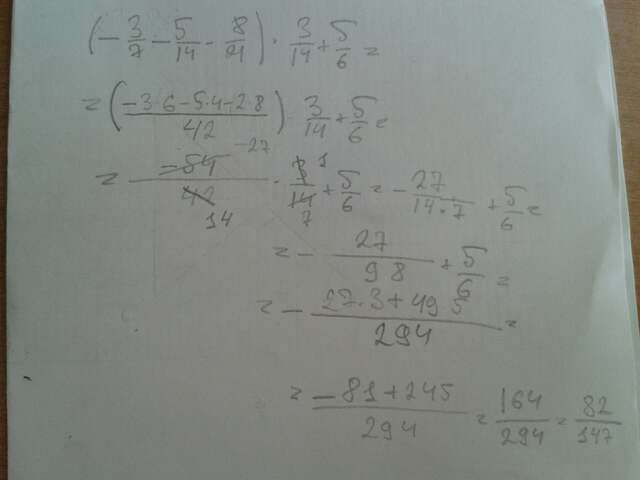 (- 3/7 - 5/14 - 8/21) · 3/14 + 5/6 =
= (-3·6-5·4-2·8/42) · 3/14 + 5/6 =
= -54 -27/42 14 · 3 1/14 7 + 5/6 = - 27/14·7 + 5/6 =
= - 27/98 + 5/6 =
= - 27·3+49 5/294 =
= -81+245/294 = 164/294 = 82/147